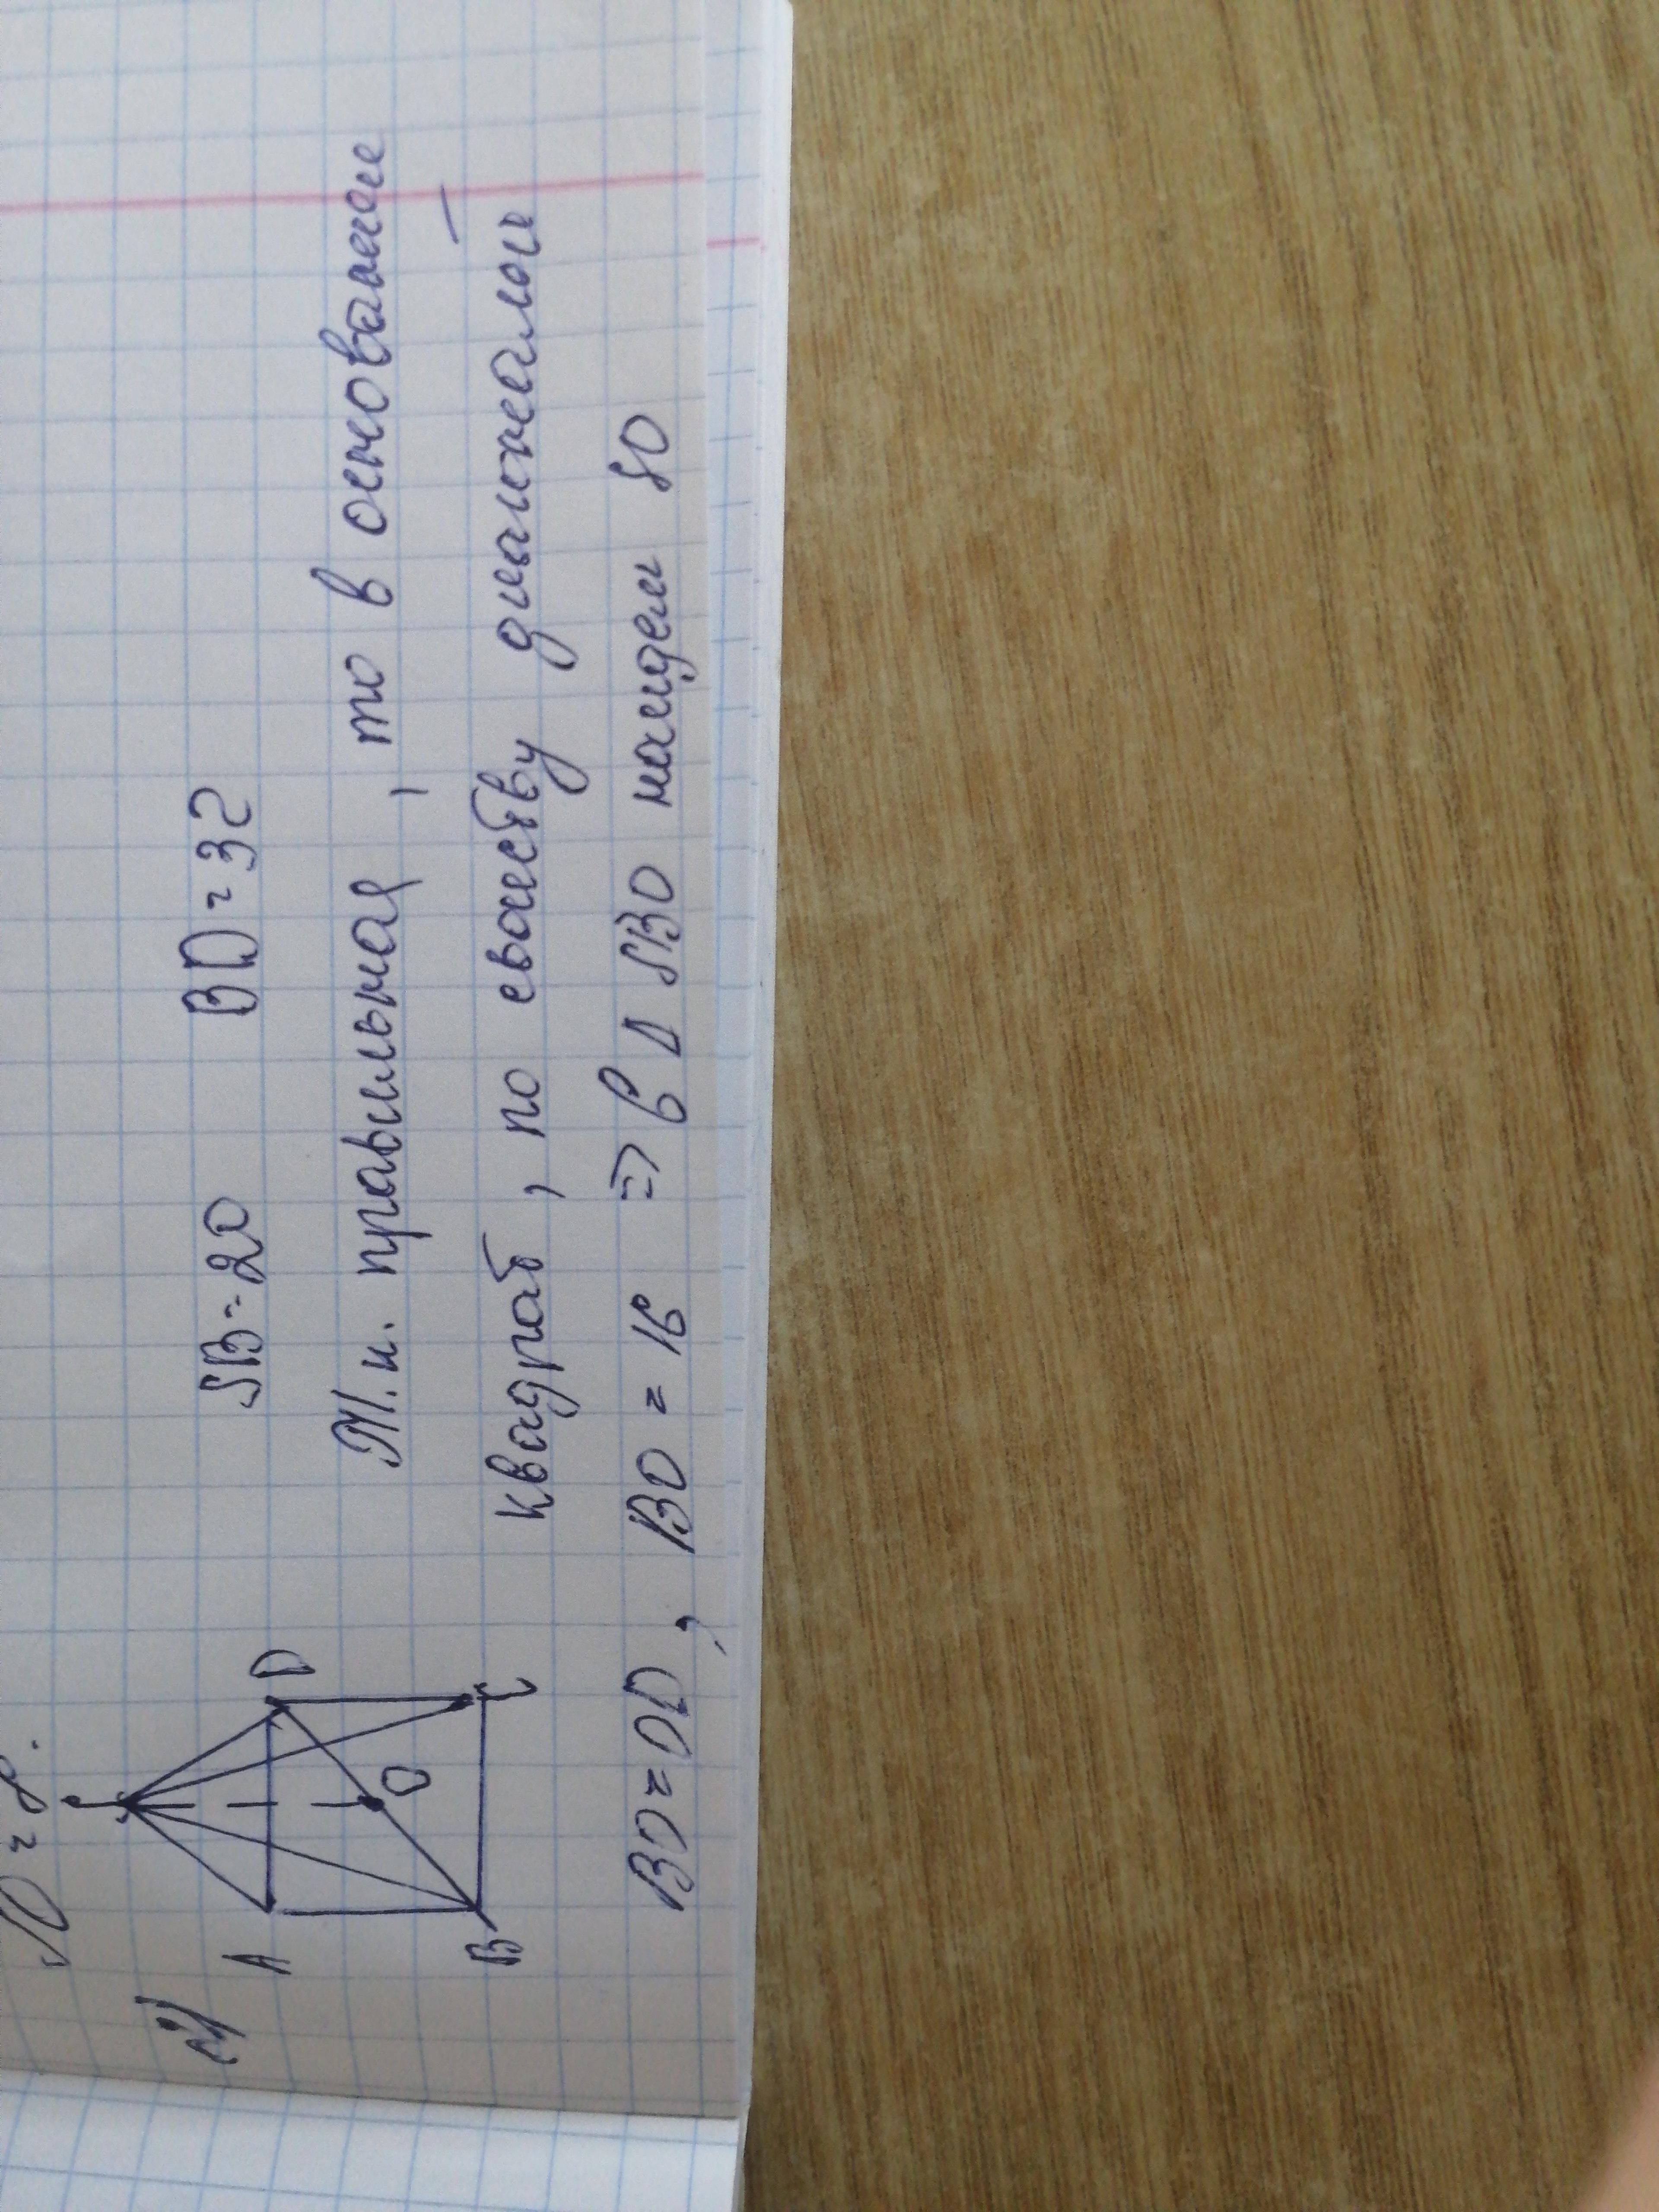 SO = 8.
2) S
A D
B C
O
SB = 20 BD = 32
Т.к. правильная, то в основании
квадрат, по свойству диагоналей
BO = OD, BO = 16 ⇒ в Δ SBO найдем SO